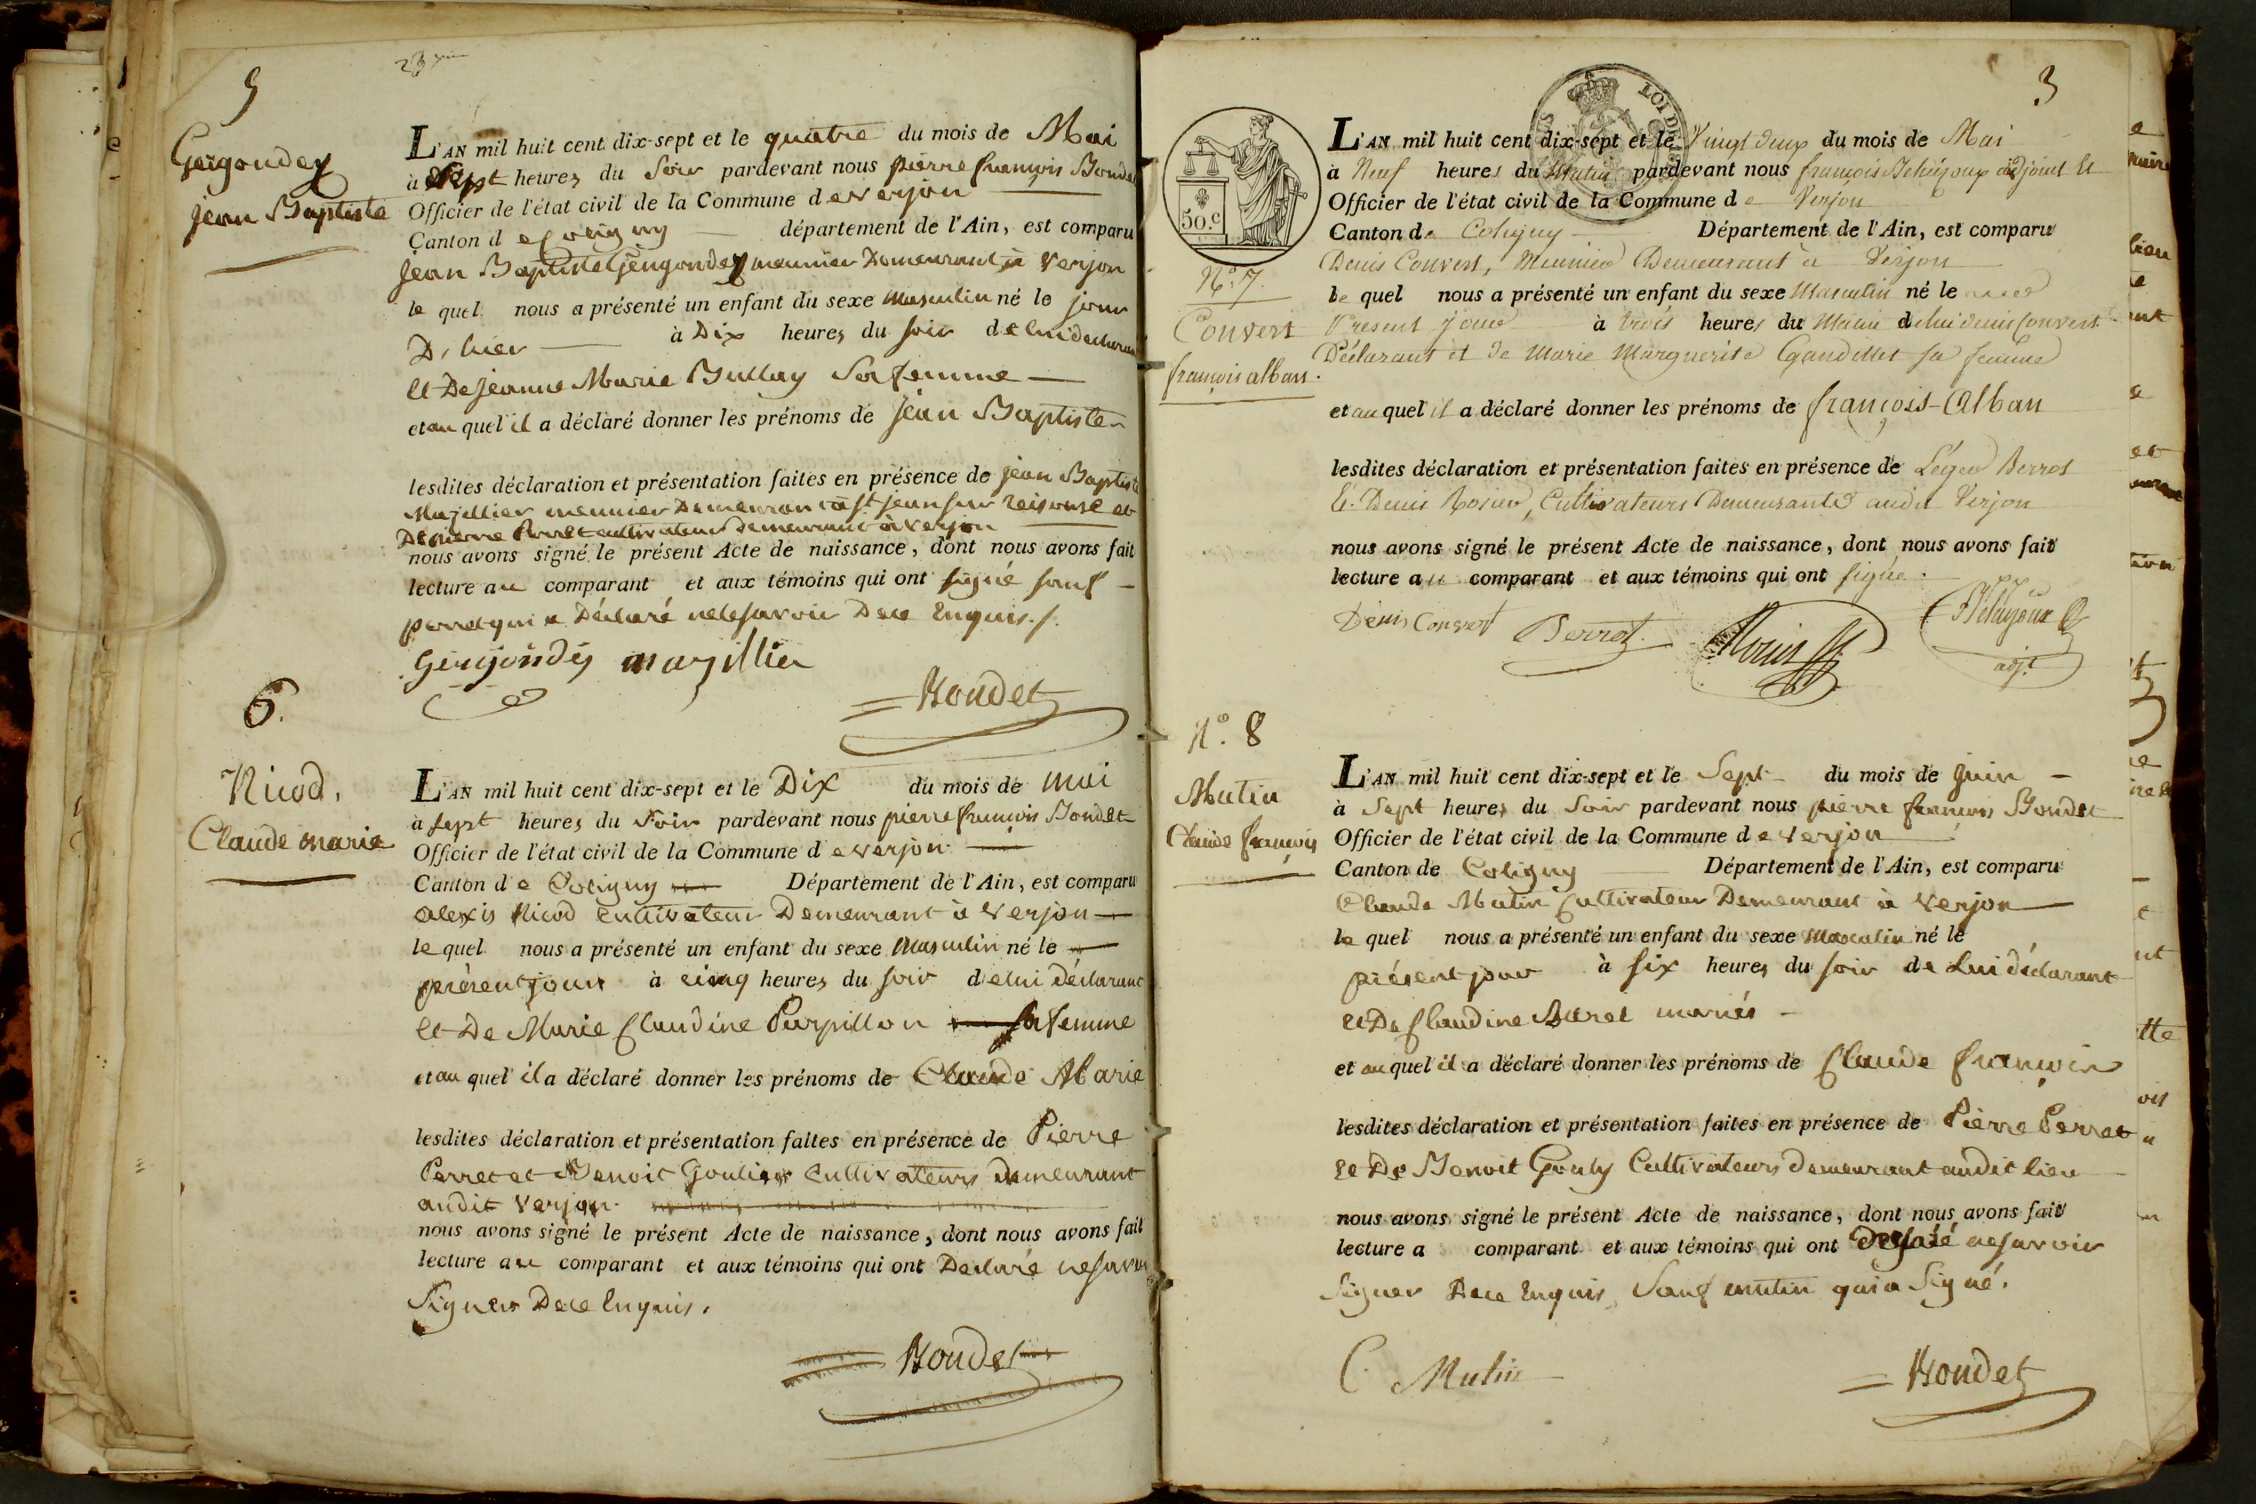 5
Gergondey
jean Baptiste
L'AN mil huit cent dix-sept et le quatre du mois de Mai
à Sept heures du Soir pardevant nous pierre françois Bondet
Officier de l'état civil de la Commune de verjon
Canton de Coligny département de l'Ain, est comparu
jean Baptiste Gergondey meunier Demeurant à Verjon
le quel nous a présenté un enfant du sexe Masculin né le jour
D'hier à Dix heures du soir de lui declarant
et De jeanne Marie Bullay Sa femme
et au quel il a déclaré donner les prénoms de jean Baptiste
lesdites déclaration et présentation faites en présence de jean Baptiste
Mazillier meunier Demeurant à St jean sur reisouse et
De pierre Perret cultivateur demeurant à verjon
nous avons signé le présent Acte de naissance, dont nous avons fait
lecture au comparant et aux témoins qui ont signé sauf
perret qui a Déclaré ne le savoir De ce Enquis./.
Gergondey mazillier
Bondet
6.
Nicod,
Claude marie
L'AN mil huit cent dix-sept et le Dix du mois de mai
à sept heures du Soir pardevant nous pierre françois Bondet
Officier de l'état civil de la Commune de verjon
Canton de Coligny Département de l'Ain, est comparu
alexis Nicod Cultivateur Demeurant à Verjon
le quel nous a présenté un enfant du sexe Masculin né le
présent jour à cinq heures du soir de lui Déclarant
et De Marie Claudine Purpillon sa femme
et au quel il a déclaré donner les prénoms de Claude Marie
lesdites déclaration et présentation faites en présence de Pierre
Perret et Benoit Goulier Cultivateurs demeurant
audit Verjon.
nous avons signé le présent Acte de naissance, dont nous avons fait
lecture au comparant et aux témoins qui ont Declaré ne savoir
Signer De ce Enquis.
Bondet
3
50.c
LOI DE
No. 7.
Convert
françois alban.
L'AN mil huit cent dix-sept et le Vingt deux du mois de Mai
à Neuf heures du Matin pardevant nous françois Béhujoux adjoint et
Officier de l'état civil de la Commune de Verjon
Canton de Coligny Département de l'Ain, est comparu
Denis Convert, Meunier Demeurant à Verjon
le quel nous a présenté un enfant du sexe Masculin né le
Présent jour à trois heures du Matin de lui denis Convert
Déclarant et de Marie Marguerite Gandillet sa femme
et au quel il a déclaré donner les prénoms de françois-Alban
lesdites déclaration et présentation faites en présence de Léger Berrod
Et Denis Rosier, Cultivateurs Demeurants audit Verjon
nous avons signé le présent Acte de naissance, dont nous avons fait
lecture au comparant et aux témoins qui ont signé.
Denis Convert Berrod Béhujoux
adjt.
No. 8
Mutin
Claude françois
L'AN mil huit cent dix-sept et le Sept du mois de juin
à Sept heures du Soir pardevant nous pierre françois Bondet
Officier de l'état civil de la Commune de verjon
Canton de Coligny Département de l'Ain, est comparu
Claude Mutin Cultivateur Demeurant à verjon
le quel nous a présenté un enfant du sexe Masculin né le
présent jour à six heures du soir de Lui déclarant
et De Claudine Buret mariés
et au quel il a déclaré donner les prénoms de Claude françois
lesdites déclaration et présentation faites en présence de Pierre Perret
et De Benoit Gouly Cultivateurs demeurant audit lieu
nous avons signé le présent Acte de naissance, dont nous avons fait
lecture a comparant et aux témoins qui ont ne savoir
Signer De ce Enquis, Sauf mutin qui a Signé.
C. Mutin
Bondet